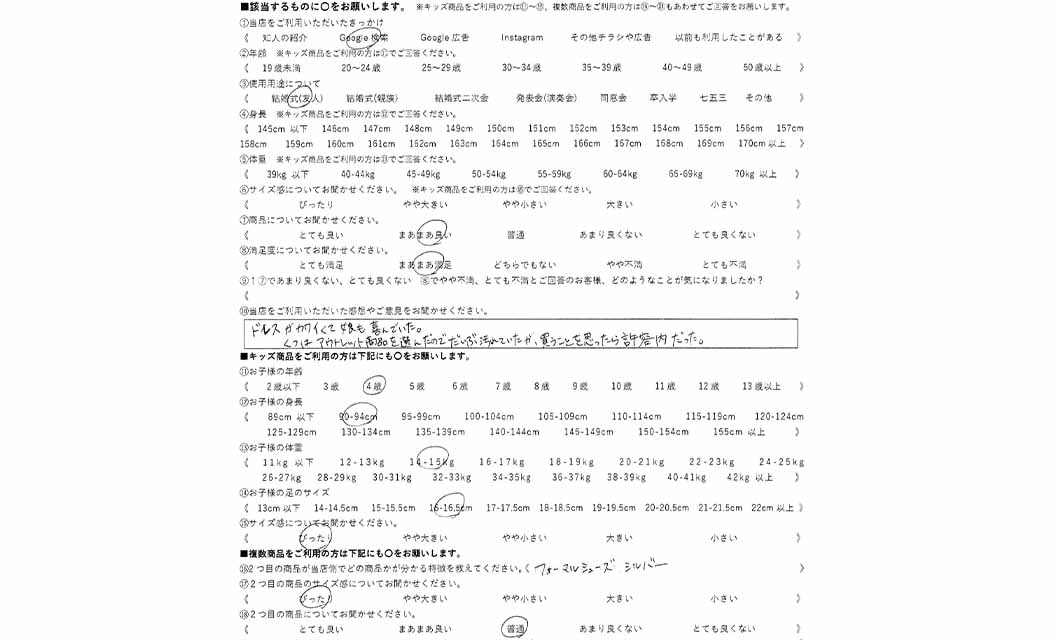 ■該当するものに〇をお願いします。 ※キッズ商品をご利用の方は⑪～⑮、複数商品をご利用の方は⑯～⑳もあわせてご回答をお願いします。
①当店をご利用いただいたきっかけ
《 知人の紹介 Google 検索 Google 広告 Instagram その他チラシや広告 以前も利用したことがある 》
②年齢 ※キッズ商品をご利用の方は⑪でご回答ください。
《 19歳未満 20～24歳 25～29歳 30～34歳 35～39歳 40～49歳 50歳以上 》
③使用用途について
《 結婚式(友人) 結婚式(親族) 結婚式二次会 発表会(演奏会) 同窓会 卒入学 七五三 その他 》
④身長 ※キッズ商品をご利用の方は⑫でご回答ください。
《 145cm 以下 146cm 147cm 148cm 149cm 150cm 151cm 152cm 153cm 154cm 155cm 156cm 157cm
158cm 159cm 160cm 161cm 162cm 163cm 164cm 165cm 166cm 167cm 168cm 169cm 170cm 以上 》
⑤体重 ※キッズ商品をご利用の方は⑬でご回答ください。
《 39kg 以下 40-44kg 45-49kg 50-54kg 55-59kg 60-64kg 65-69kg 70kg 以上 》
⑥サイズ感についてお聞かせください。 ※キッズ商品をご利用の方は⑮でご回答ください。
《 ぴったり やや大きい やや小さい 大きい 小さい 》
⑦商品についてお聞かせください。
《 とても良い まあまあ良い 普通 あまり良くない とても良くない 》
⑧満足度についてお聞かせください。
《 とても満足 まあまあ満足 どちらでもない やや不満 とても不満 》
⑨1⑦であまり良くない、とても良くない ⑧でやや不満、とても不満とご回答のお客様、どのようなことが気になりましたか？
《 》
⑩当店をご利用いただいた感想やご意見をお聞かせください。
ドレスがカワイくて娘も喜んでいた。
くつはアウトレット商品を選んだのでだいぶ汚れていたが、買うことを思ったら許容内だった。
■キッズ商品をご利用の方は下記にも〇をお願いします。
⑪お子様の年齢
《 2歳以下 3歳 4歳 5歳 6歳 7歳 8歳 9歳 10歳 11歳 12歳 13歳以上 》
⑫お子様の身長
《 89cm 以下 90-94cm 95-99cm 100-104cm 105-109cm 110-114cm 115-119cm 120-124cm
125-129cm 130-134cm 135-139cm 140-144cm 145-149cm 150-154cm 155cm 以上 》
⑬お子様の体重
《 11kg 以下 12-13kg 14-15kg 16-17kg 18-19kg 20-21kg 22-23kg 24-25kg
26-27kg 28-29kg 30-31kg 32-33kg 34-35kg 36-37kg 38-39kg 40-41kg 42kg 以上 》
⑭お子様の足のサイズ
《 13cm 以下 14-14.5cm 15-15.5cm 16-16.5cm 17-17.5cm 18-18.5cm 19-19.5cm 20-20.5cm 21-21.5cm 22cm 以上 》
⑮サイズ感についてお聞かせください。
《 ぴったり やや大きい やや小さい 大きい 小さい 》
■複数商品をご利用の方は下記にも〇をお願いします。
⑯2つ目の商品が当店側でどの商品かが分かる特徴を教えてください。《 フォーマルシューズ シルバー 》
⑰2つ目の商品のサイズ感についてお聞かせください。
《 ぴったり やや大きい やや小さい 大きい 小さい 》
⑱2つ目の商品についてお聞かせください。
《 とても良い まあまあ良い 普通 あまり良くない とても良くない 》